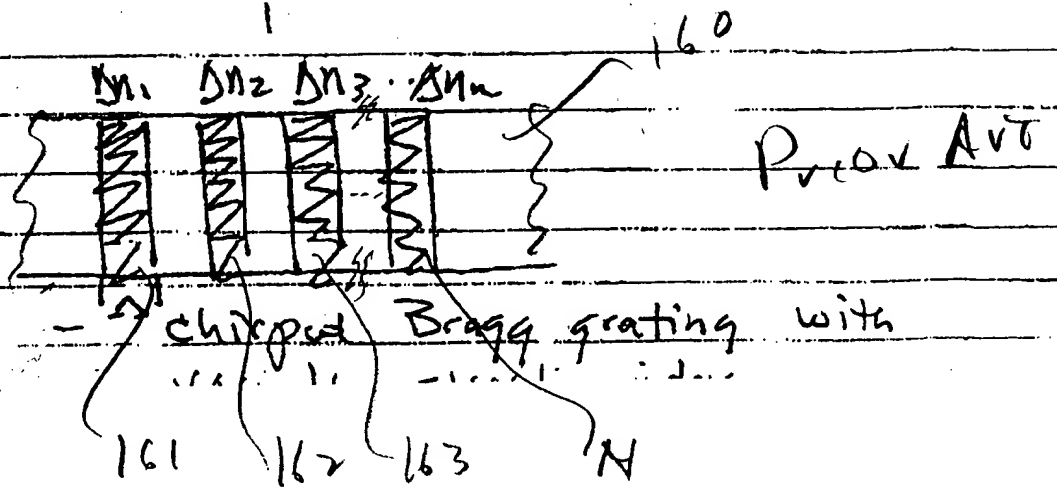 1
160
Δn₁ Δn₂ Δn₃ ... Δnₙ
Prior Art
- chirped Bragg grating with
161 162 163 N